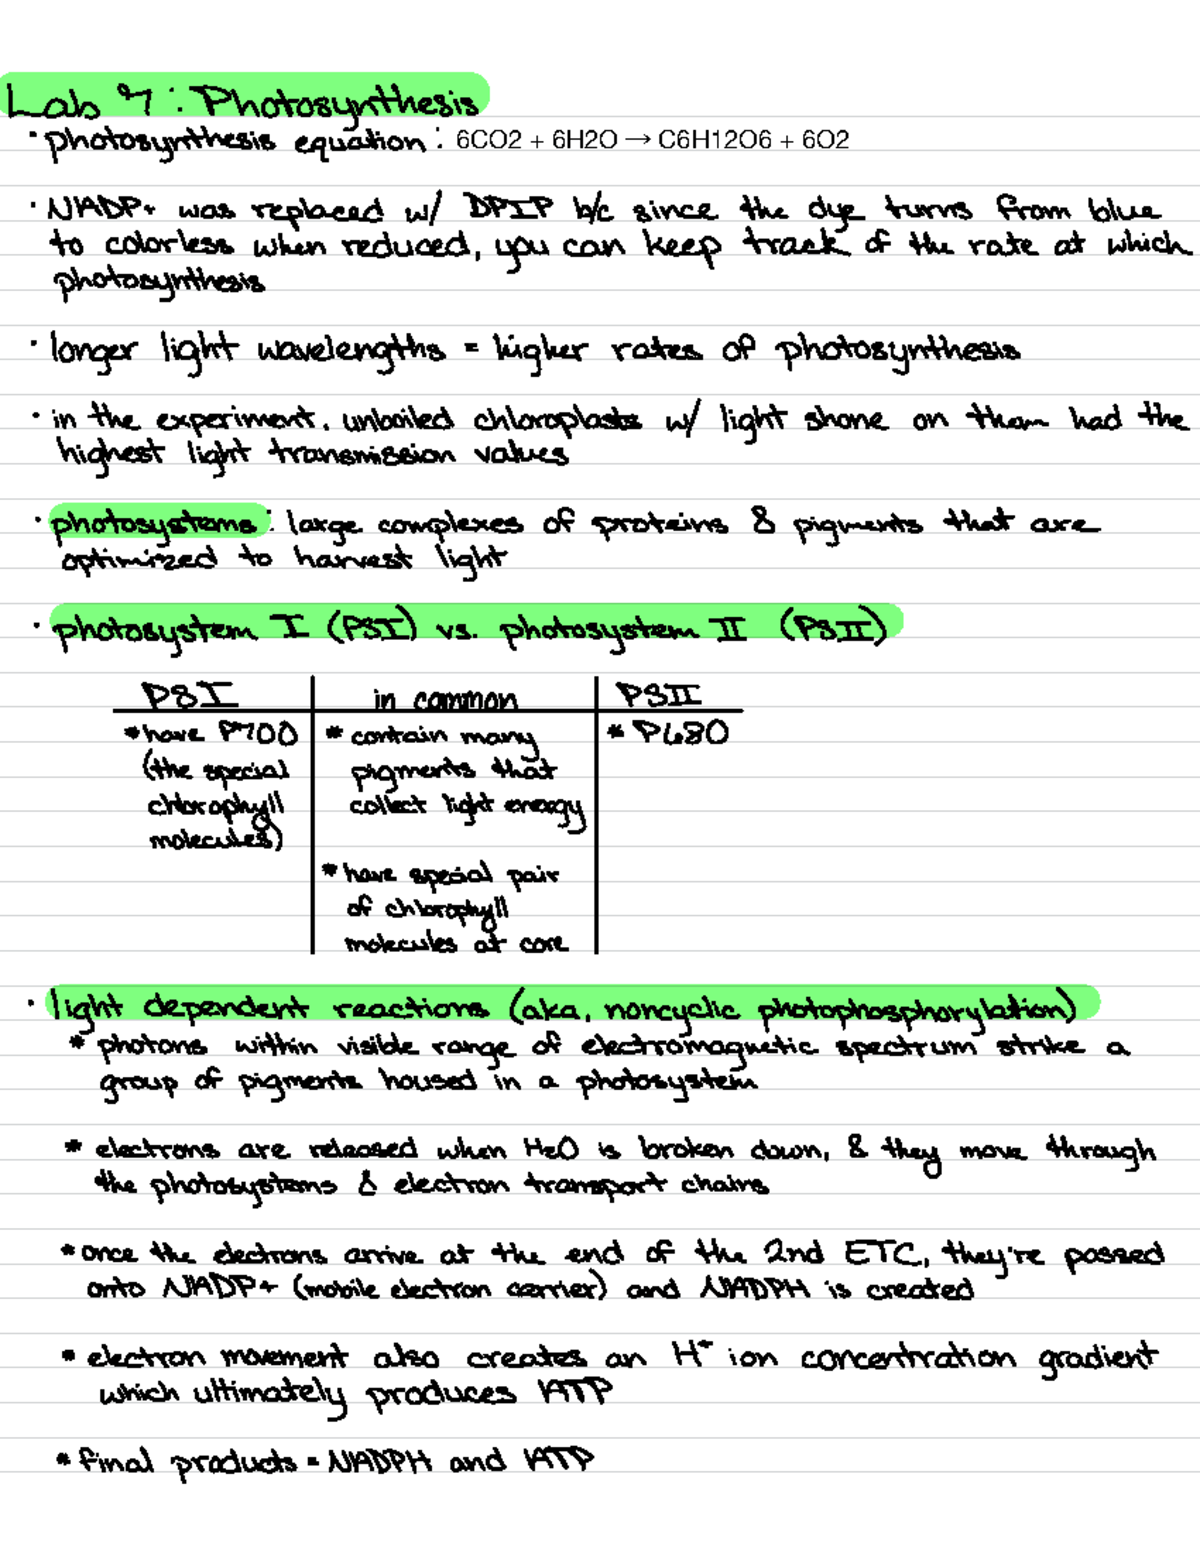 Lab 7 : Photosynthesis
• photosynthesis equation : 6CO2 + 6H2O → C6H12O6 + 6O2
• NADP+ was replaced w/ DPIP b/c since the dye turns from blue
to colorless when reduced, you can keep track of the rate at which
photosynthesis
• longer light wavelengths = higher rates of photosynthesis
• in the experiment, unboiled chloroplasts w/ light shone on them had the
highest light transmission values
• photosystems : large complexes of proteins & pigments that are
optimized to harvest light
• photosystem I (PSI) vs. photosystem II (PSII)
PSI in common PSII
* have P700 * contain many * P680
(the special pigments that
chlorophyll collect light energy
molecules)
* have special pair
of chlorophyll
molecules at core
• light dependent reactions (aka, noncyclic photophosphorylation)
* photons within visible range of electromagnetic spectrum strike a
group of pigments housed in a photosystem
* electrons are released when H2O is broken down, & they move through
the photosystems & electron transport chains
* once the electrons arrive at the end of the 2nd ETC, they're passed
onto NADP+ (mobile electron carrier) and NADPH is created
* electron movement also creates an H+ ion concentration gradient
which ultimately produces ATP
* final products = NADPH and ATP